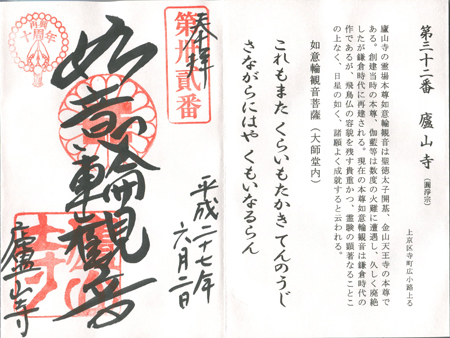 第三十二番 廬山寺（圓浄宗）
上京区寺町広小路上る
廬山寺の霊場本尊如意輪観音は聖徳太子開基、金山天王寺の本尊で
ある。創建当時の本尊、伽藍等は数度の火難に遭遇し、久しく廃絶
したが鎌倉時代に再建される。現在の本尊如意輪観音は鎌倉時代の
作であるが、飛鳥仏の容貌を残す貴重かつ、霊験の顕著なること
の上なく、日星の如く、諸願よく成就すると云われる。
如意輪観音菩薩（大師堂内）
これもまた くらいもたかき てんのうじ
さながらにはや くもいなるらん
第卅貳番
奉拝
平成二十七年
六月二日
如意輪観音
廬山寺
再興
十周年